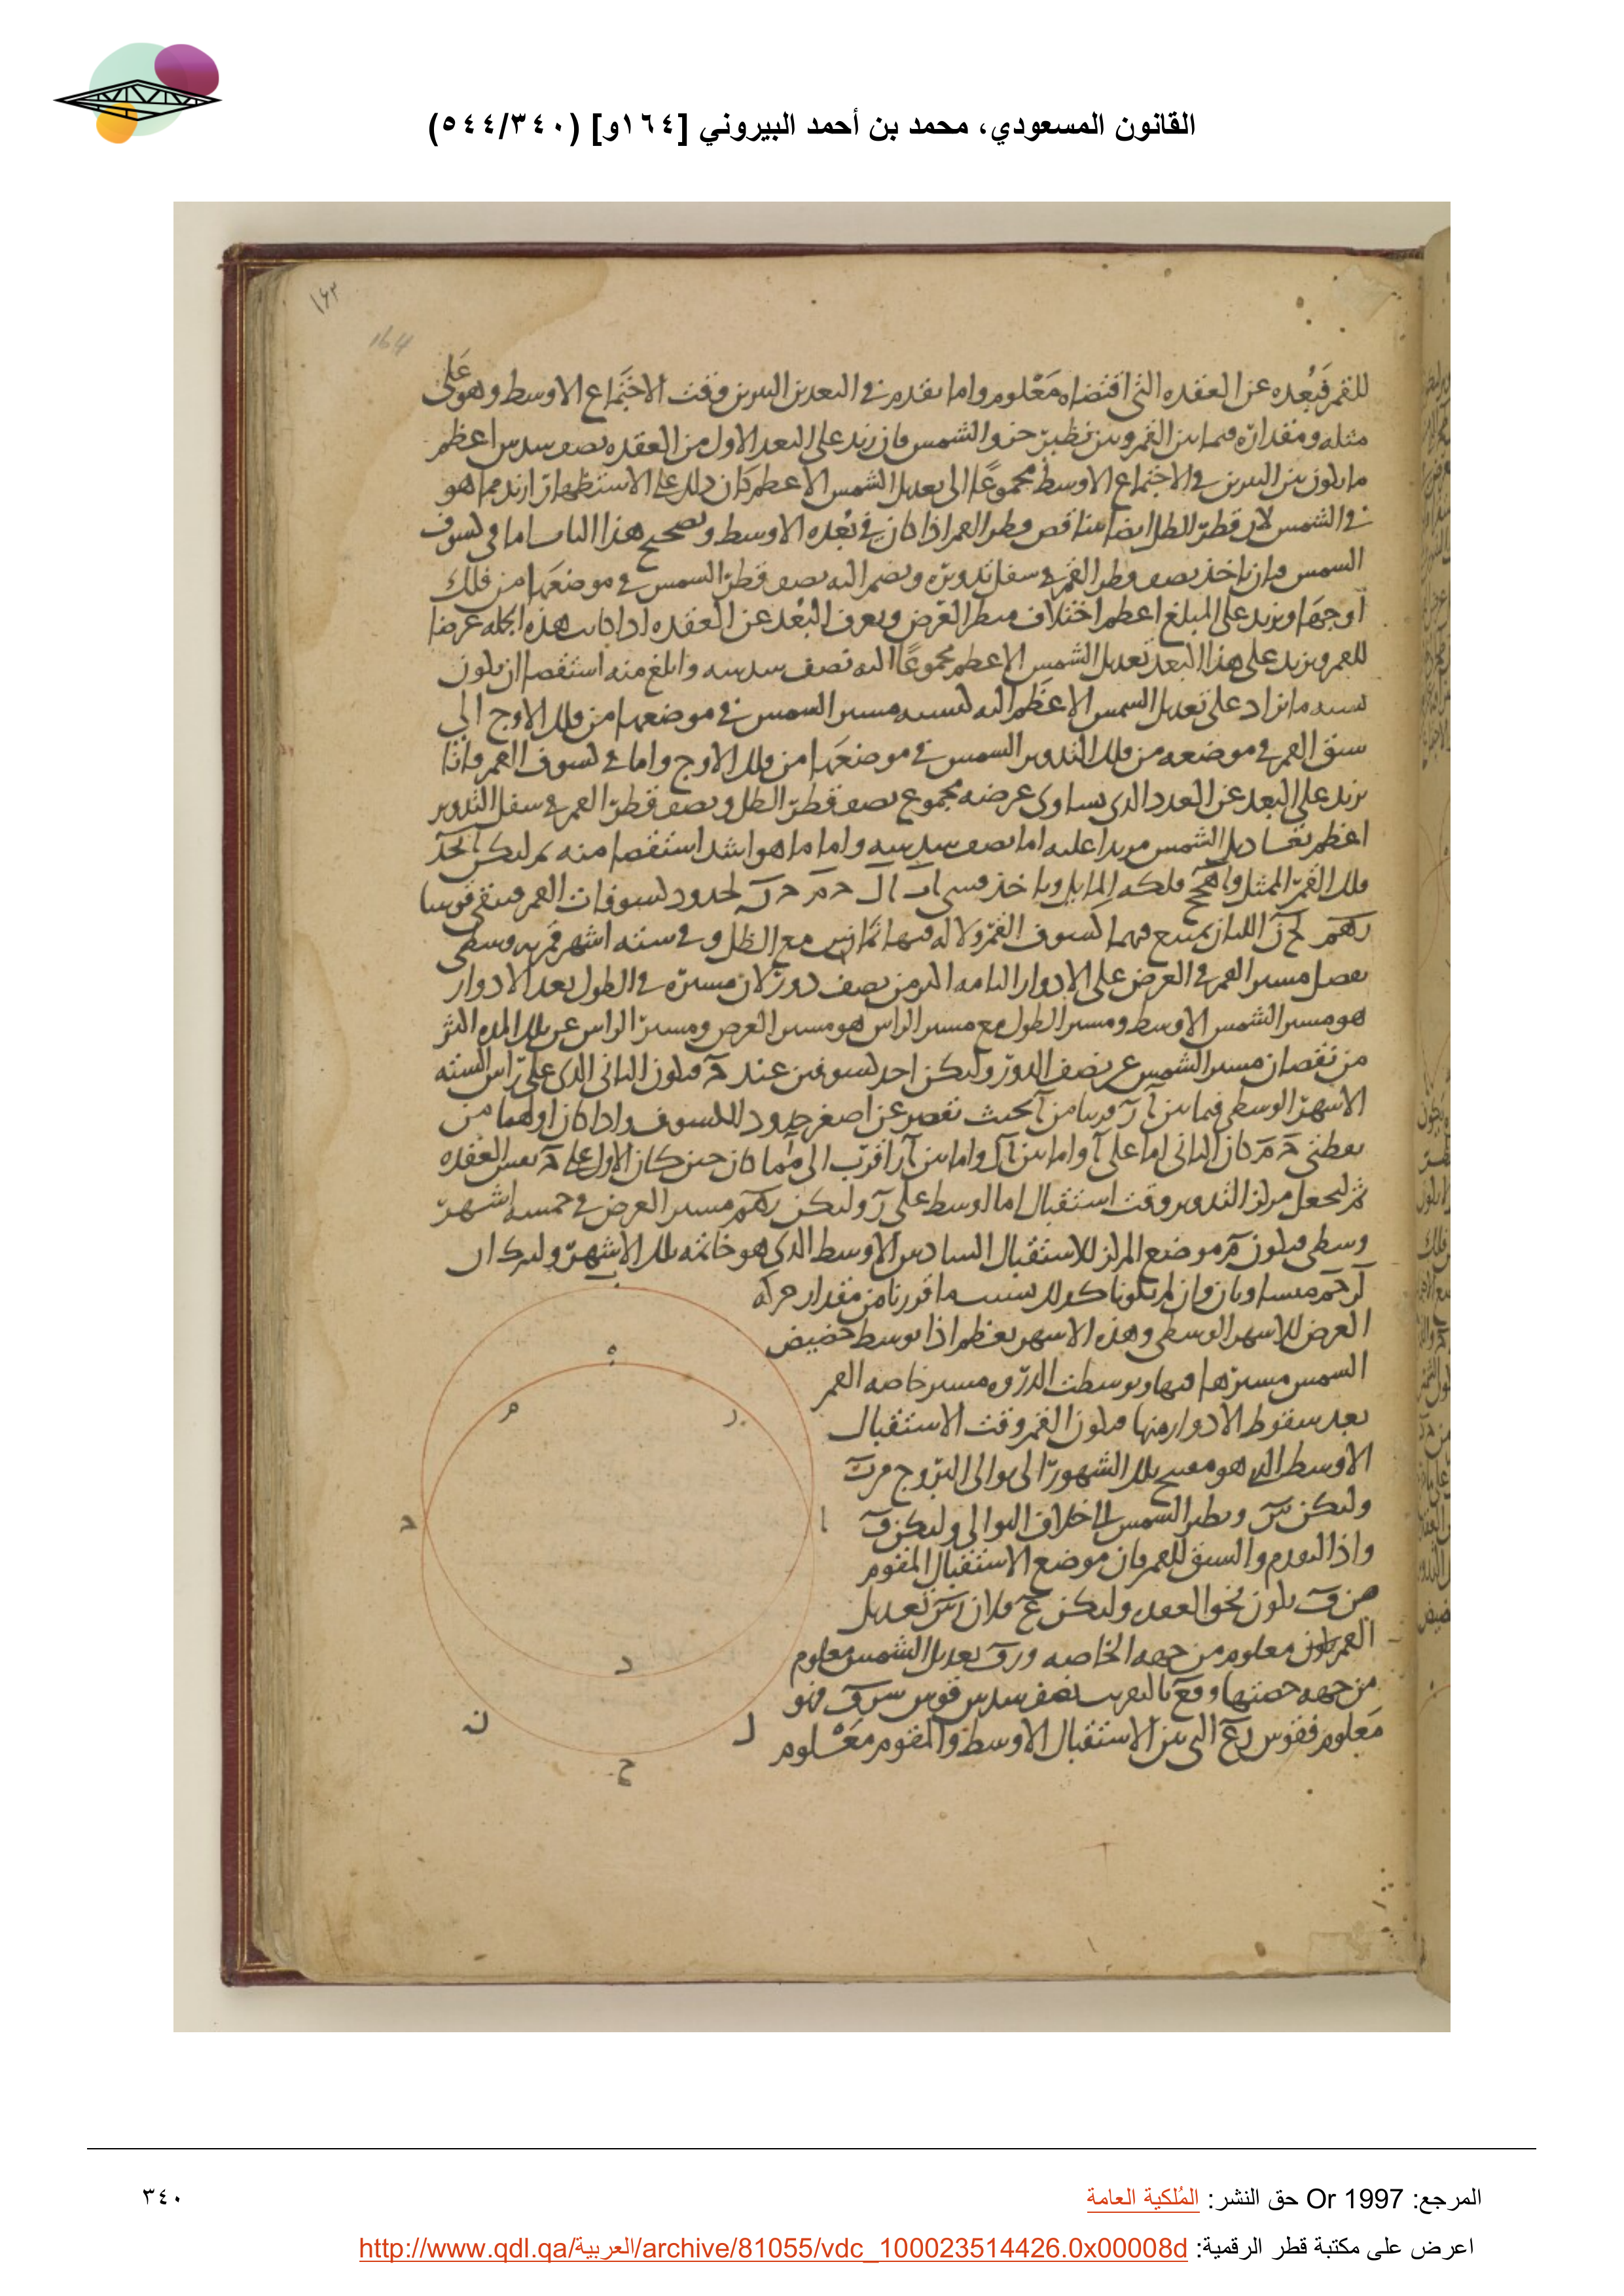 القانون المسعودي، محمد بن أحمد البيروني [١٦٤و] (٥٤٤/٣٤٠)
١٦٣
164
للقمر فبُعده عن العقده التى اقتضاه مَعْلوم واما بقدم في البعد بين النيرين وقت الاجتماع الاوسط وهو على
مثله ومقداره فيما بين القمر وبين نظير جزو الشمس فان زيد على البعد الاول من العقده نصف سدس اعظم
ما يكون بين النيرين في الاجتماع الاوسط مجموعًا الى تعديل الشمس الاعظم كان ذلك على الاستظهار ازيد مما هو
في الشمس لان قطر الظل ايضا قطر القمر اذا كان في بُعْده الاوسط وتصحيح هذا الباب اما في كسوف
الشمس فبان ناخذ نصف قطر القمر في سفل تدويره ونضم اليه نصف قطر الشمس في موضعها من فلك
اوجها ونزيد على المبلغ اعظم اختلاف منظر العرض ونعرف البُعْد عن العقده اذا كانت هذه الجمله عرضا
للقمر ونزيد على هذا البعد تعديل الشمس الاعظم مجموعًا اليه نصف سدسه وابلغ منه استقصا ان يكون
نسبه ما يزاد على تعديل الشمس الاعظم اليه كنسبه مسير الشمس في موضعها من فلك الاوج الى
سبق القمر في موضعه من فلك التدوير الشمس في موضعها من فلك الاوج واما في كسوف القمر فانا
نزيد على البعد عن العدد الذى يساوى عرضه مجموع نصف قطر الظل ونصف قطر القمر في سفل التدوير
اعظم تعاديل الشمس مزيدا عليه اما نصف سدسه واما ما هو اشد استقصا منه ثم ليكن
فلك القمر الممثل فلكه المايل وناخذ لحدود كسوفات القمر فتبقى قوسا
اللتان يمتنع فيهما كسوف القمر ولانه فيها مع الظل وفي سته اشهر قمريه وسطى
يفصل مسير القمر في العرض على الادوار التامه اكثر من نصف دور لان مسيره في الطول بعد الادوار
هو مسير الشمس الاوسط ومسير الطول مع مسير الراس هو مسير العرض ومسير الراس في تلك المده اكثر
من نقصان مسير الشمس عن نصف الدور وليكن احد كسوفين عند فيكون الثانى الذى على راس السته
الاشهر الوسطى فيما بين قريبا من بحيث تقصر عن اصغر حدود الكسوف واذا كان اولهما من
نقطتى كان الثانى اما على واما بين واما بين اقرب الى مما كان حين كان الاول على نفس العقده
ثم ليجعل مركز التدوير وقت استقبال اما لوسط على وليكن مسير العرض في خمسه اشهر
وسطى فيكون موضع المركز للاستقبال السادس الاوسط الذى هو خاتمه تلك الاشهر وليكن
متساويان وان لم يكونا كذلك بسبب ما قررنا من مقدار حركه
العرض للاشهر الوسطى وهذه الاشهر تعظم اذا توسط حضيض
الشمس مسيرها فيها وتوسطت الذروه مسير خاصه القمر
بعد سقوط الادوار منها فيكون القمر وقت الاستقبال
الاوسط الذى هو تلك الشهور الى توالى البروج
وليكن ونظير الشمس الى خلاف التوالى وليكن
واذ التقدم والسبق للقمر فان موضع الاستقبال المقوم
من يكون نحو العقده وليكن فلان تعديل
القمر يكون معلوم من جهه الخاصه تعديل الشمس معلوم
من جهه حصتها بالتقريب نصف سدس قوس فهو
مَعلوم فقوس التى بين الاستقبال الاوسط والمقوم مَعْلوم
ب
ه
م
ز
ا
د
ن
ل
ح
المرجع: Or 1997 حق النشر: المُلكية العامة
٣٤٠
اعرض على مكتبة قطر الرقمية: http://www.qdl.qa/العربية/archive/81055/vdc_100023514426.0x00008d